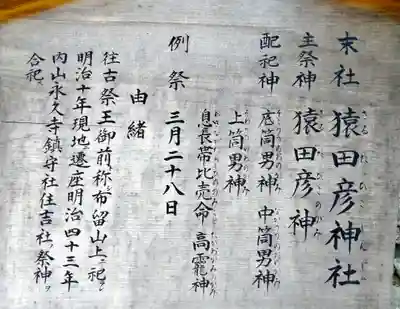 末社 猿田彦神社
主祭神 猿田彦神
配祀神 底筒男神 中筒男神
上筒男神
息長帯比売命 高龗神
例祭 三月二十八日
由緒
往古祭王御前ト称シ布留山上ニ祀ル
明治十年現地ニ遷座明治四十三年
内山永久寺鎮守社住吉社ノ祭神ヲ
合祀ス